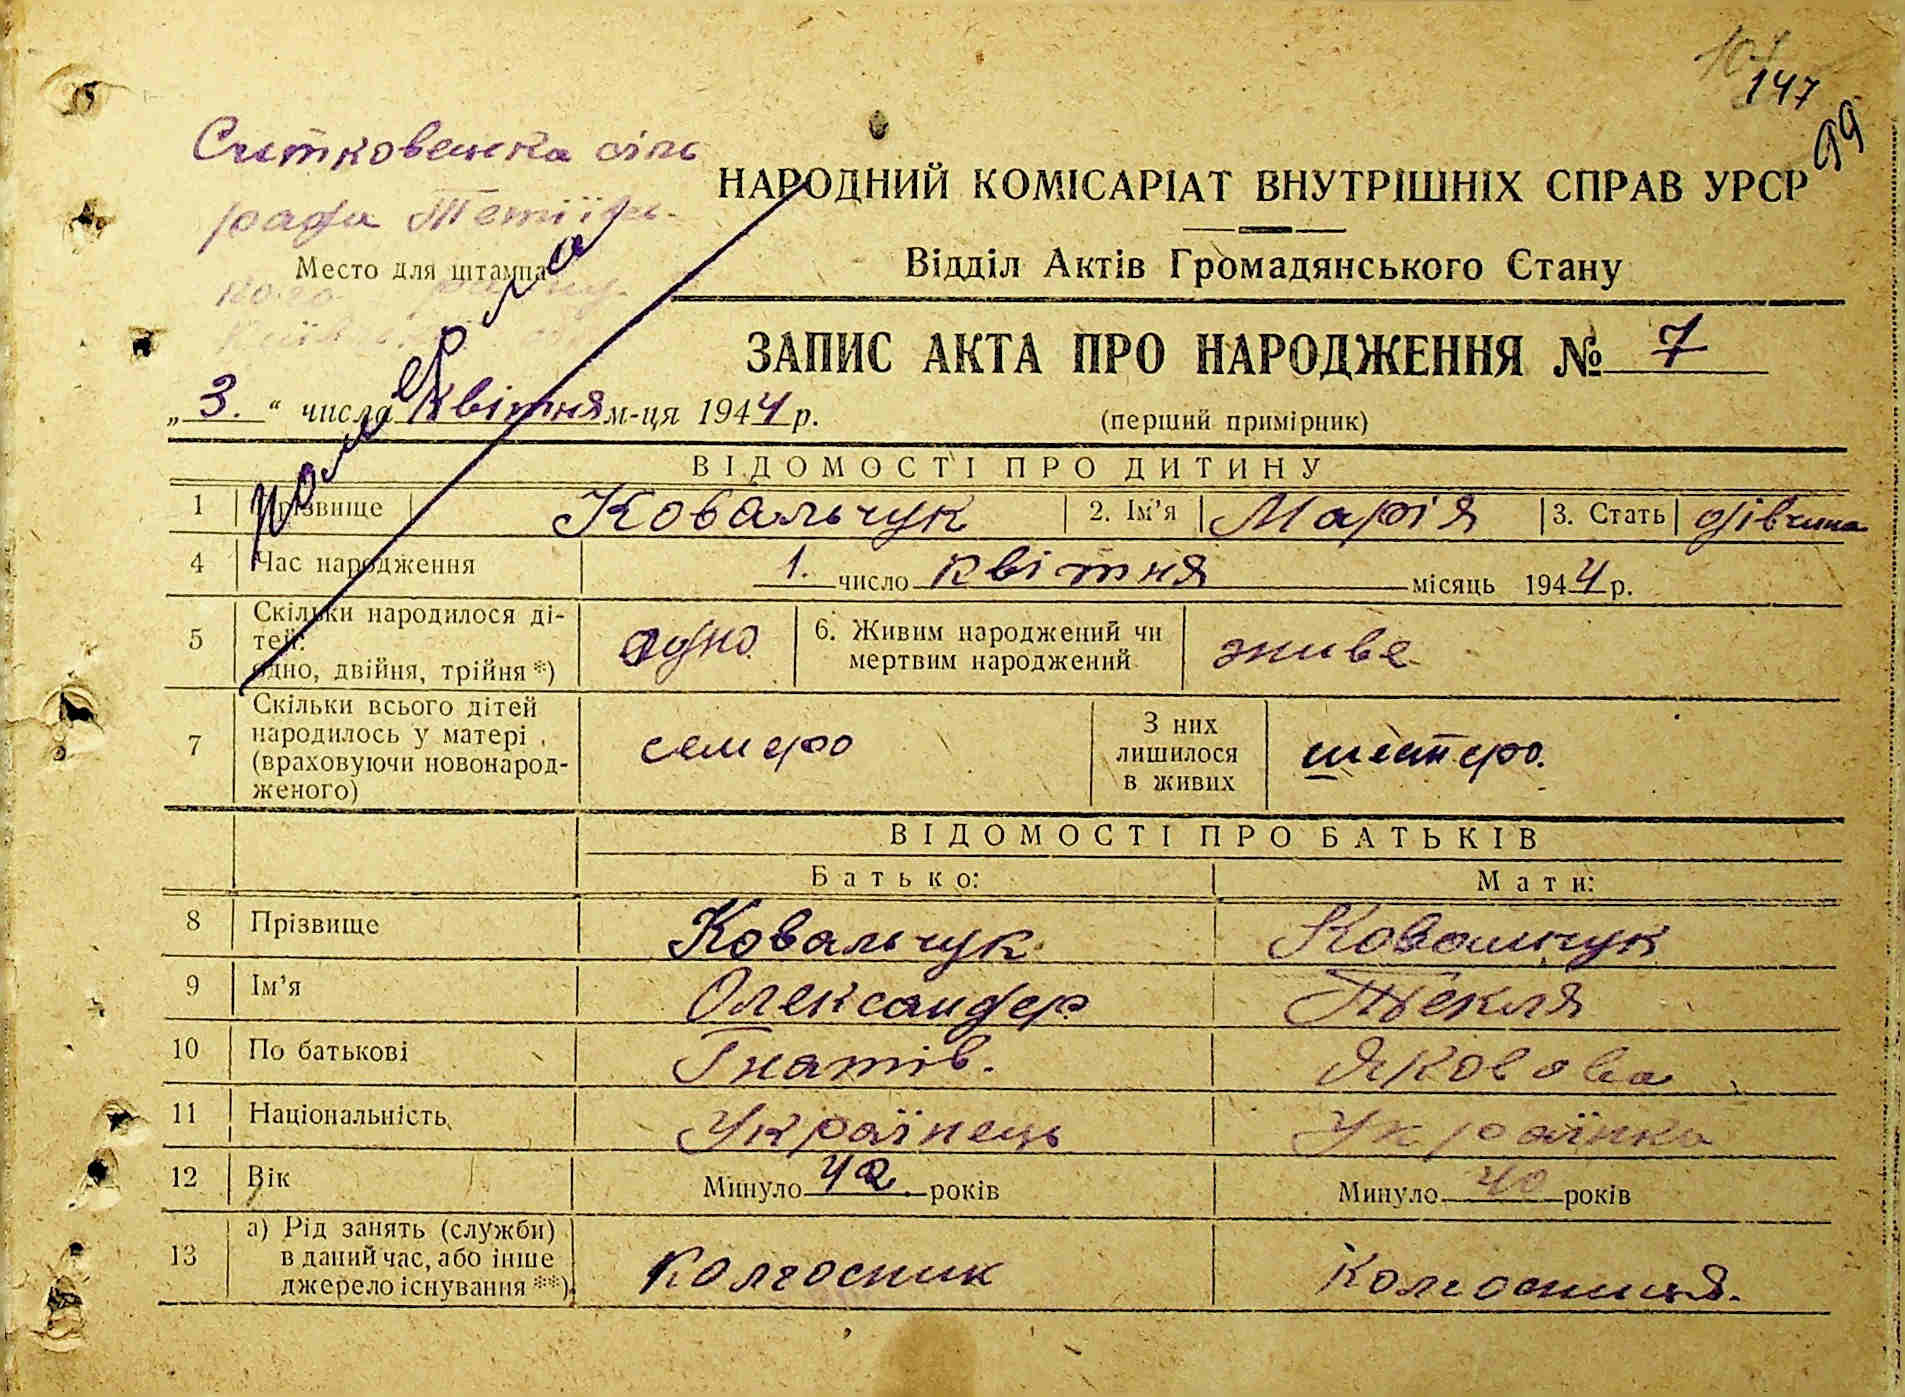 147
99
Ситковецька сіль
рада Тетіївсь-
НАРОДНИЙ КОМІСАРІАТ ВНУТРІШНІХ СПРАВ УРСР
Место для штампа
Відділ Актів Громадянського Стану
померла
ЗАПИС АКТА ПРО НАРОДЖЕННЯ № 7
„3.“ числа квітня м-ця 1944 р.
(перший примірник)
ВІДОМОСТІ ПРО ДИТИНУ
1 Прізвище Ковальчук 2. Ім’я Марія 3. Стать дівчина
4 Час народження 1. число квітня місяць 1944 р.
5 Скільки народилося ді-
тей:
одно, двійня, трійня *) одно 6. Живим народжений чи
мертвим народжений живе
7 Скільки всього дітей
народилось у матері
(враховуючи новонарод-
женого) семеро З них
лишилося
в живих шестеро.
ВІДОМОСТІ ПРО БАТЬКІВ
Батько: Мати:
8 Прізвище Ковальчук Ковальчук
9 Ім’я Олександер Текля
10 По батькові Гнатів. Яковова
11 Національність Українець Українка
12 Вік Минуло 42 років Минуло 40 років
13 а) Рід занять (служби)
в даний час, або інше
джерело існування **) Колгосник Колгосниця.